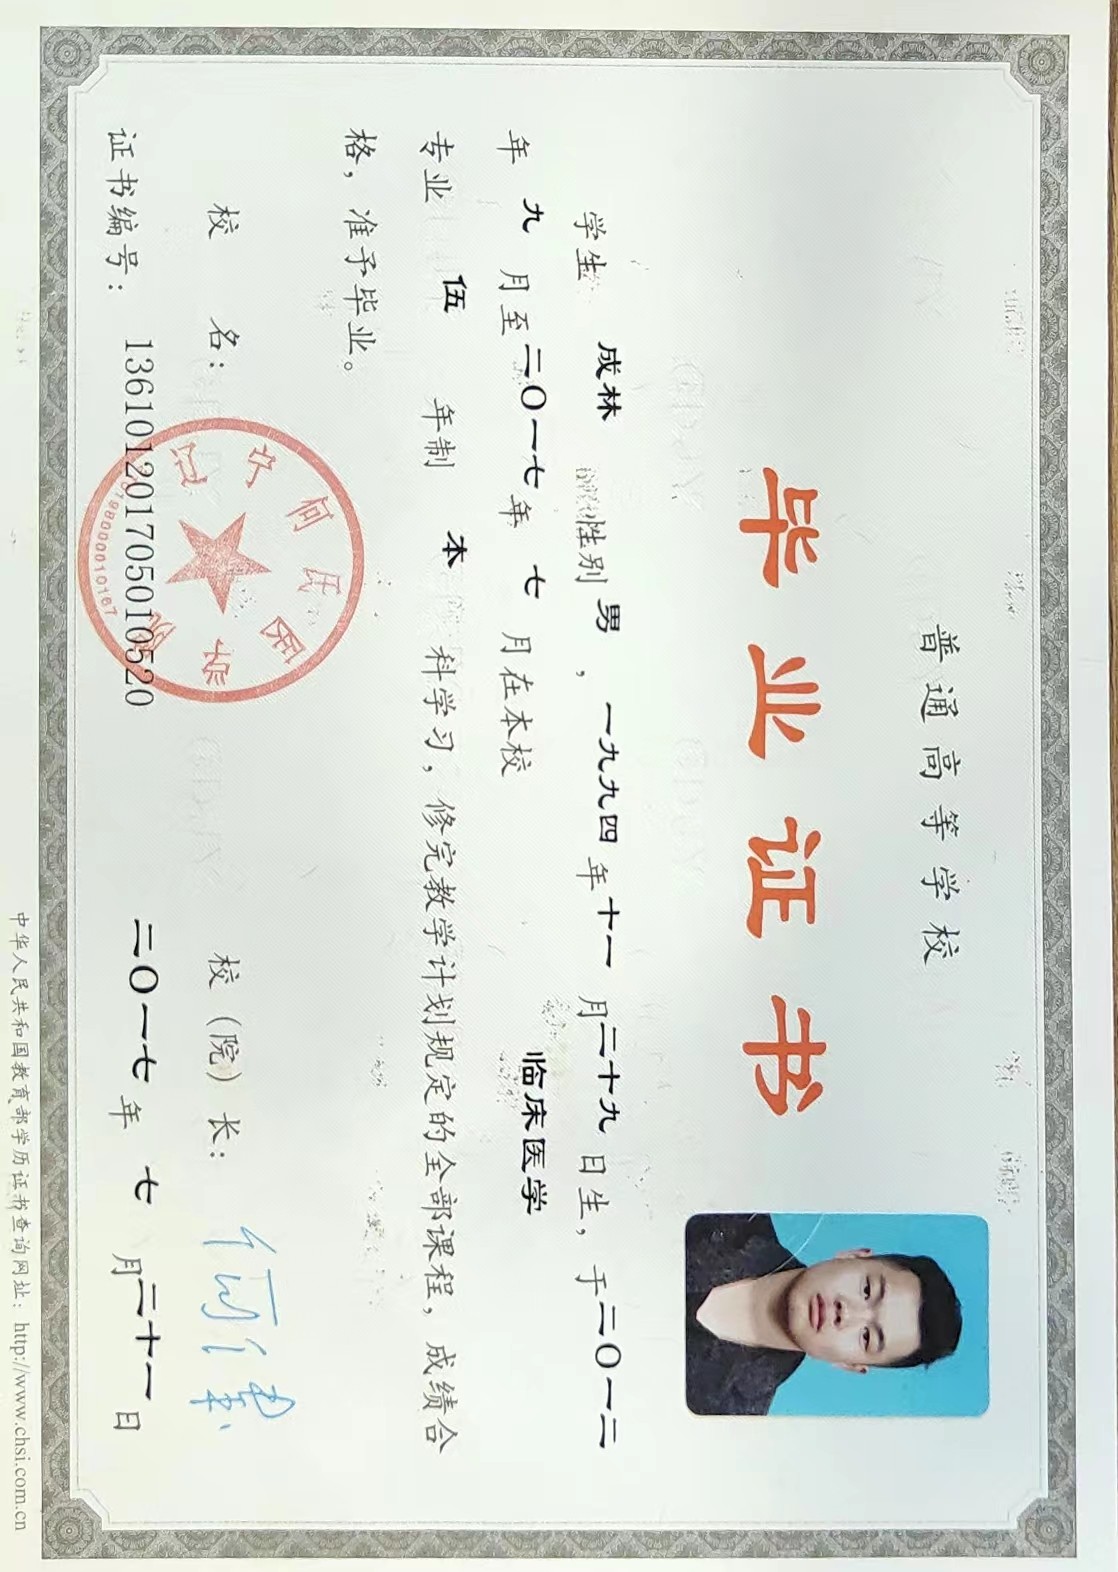 普通高等学校
毕业证书
学生 成林 性别 男 , 一九九四 年 十一 月 二十九 日生, 于 二〇一二
年 九 月至 二〇一七 年 七 月在本校 临床医学
专业 伍 年制 本 科学习, 修完教学计划规定的全部课程, 成绩合
格, 准予毕业。
校 名: 校 (院) 长:
证书编号: 136101201705010520 二〇一七 年 七 月 二十一 日
中华人民共和国教育部学历证书查询网址: http://www.chsi.com.cn